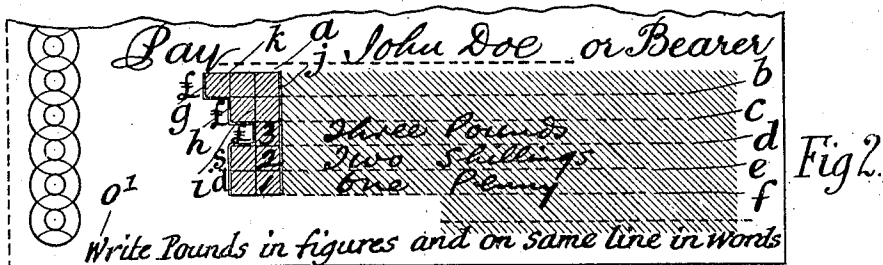 k a
Pay John Doe or Bearer
j
£ b
g £ c
h £ 3 Three Pounds d
s 2 Two Shillings e
i d 1 One Penny f
Fig 2.
o¹
Write Pounds in figures and on same line in words